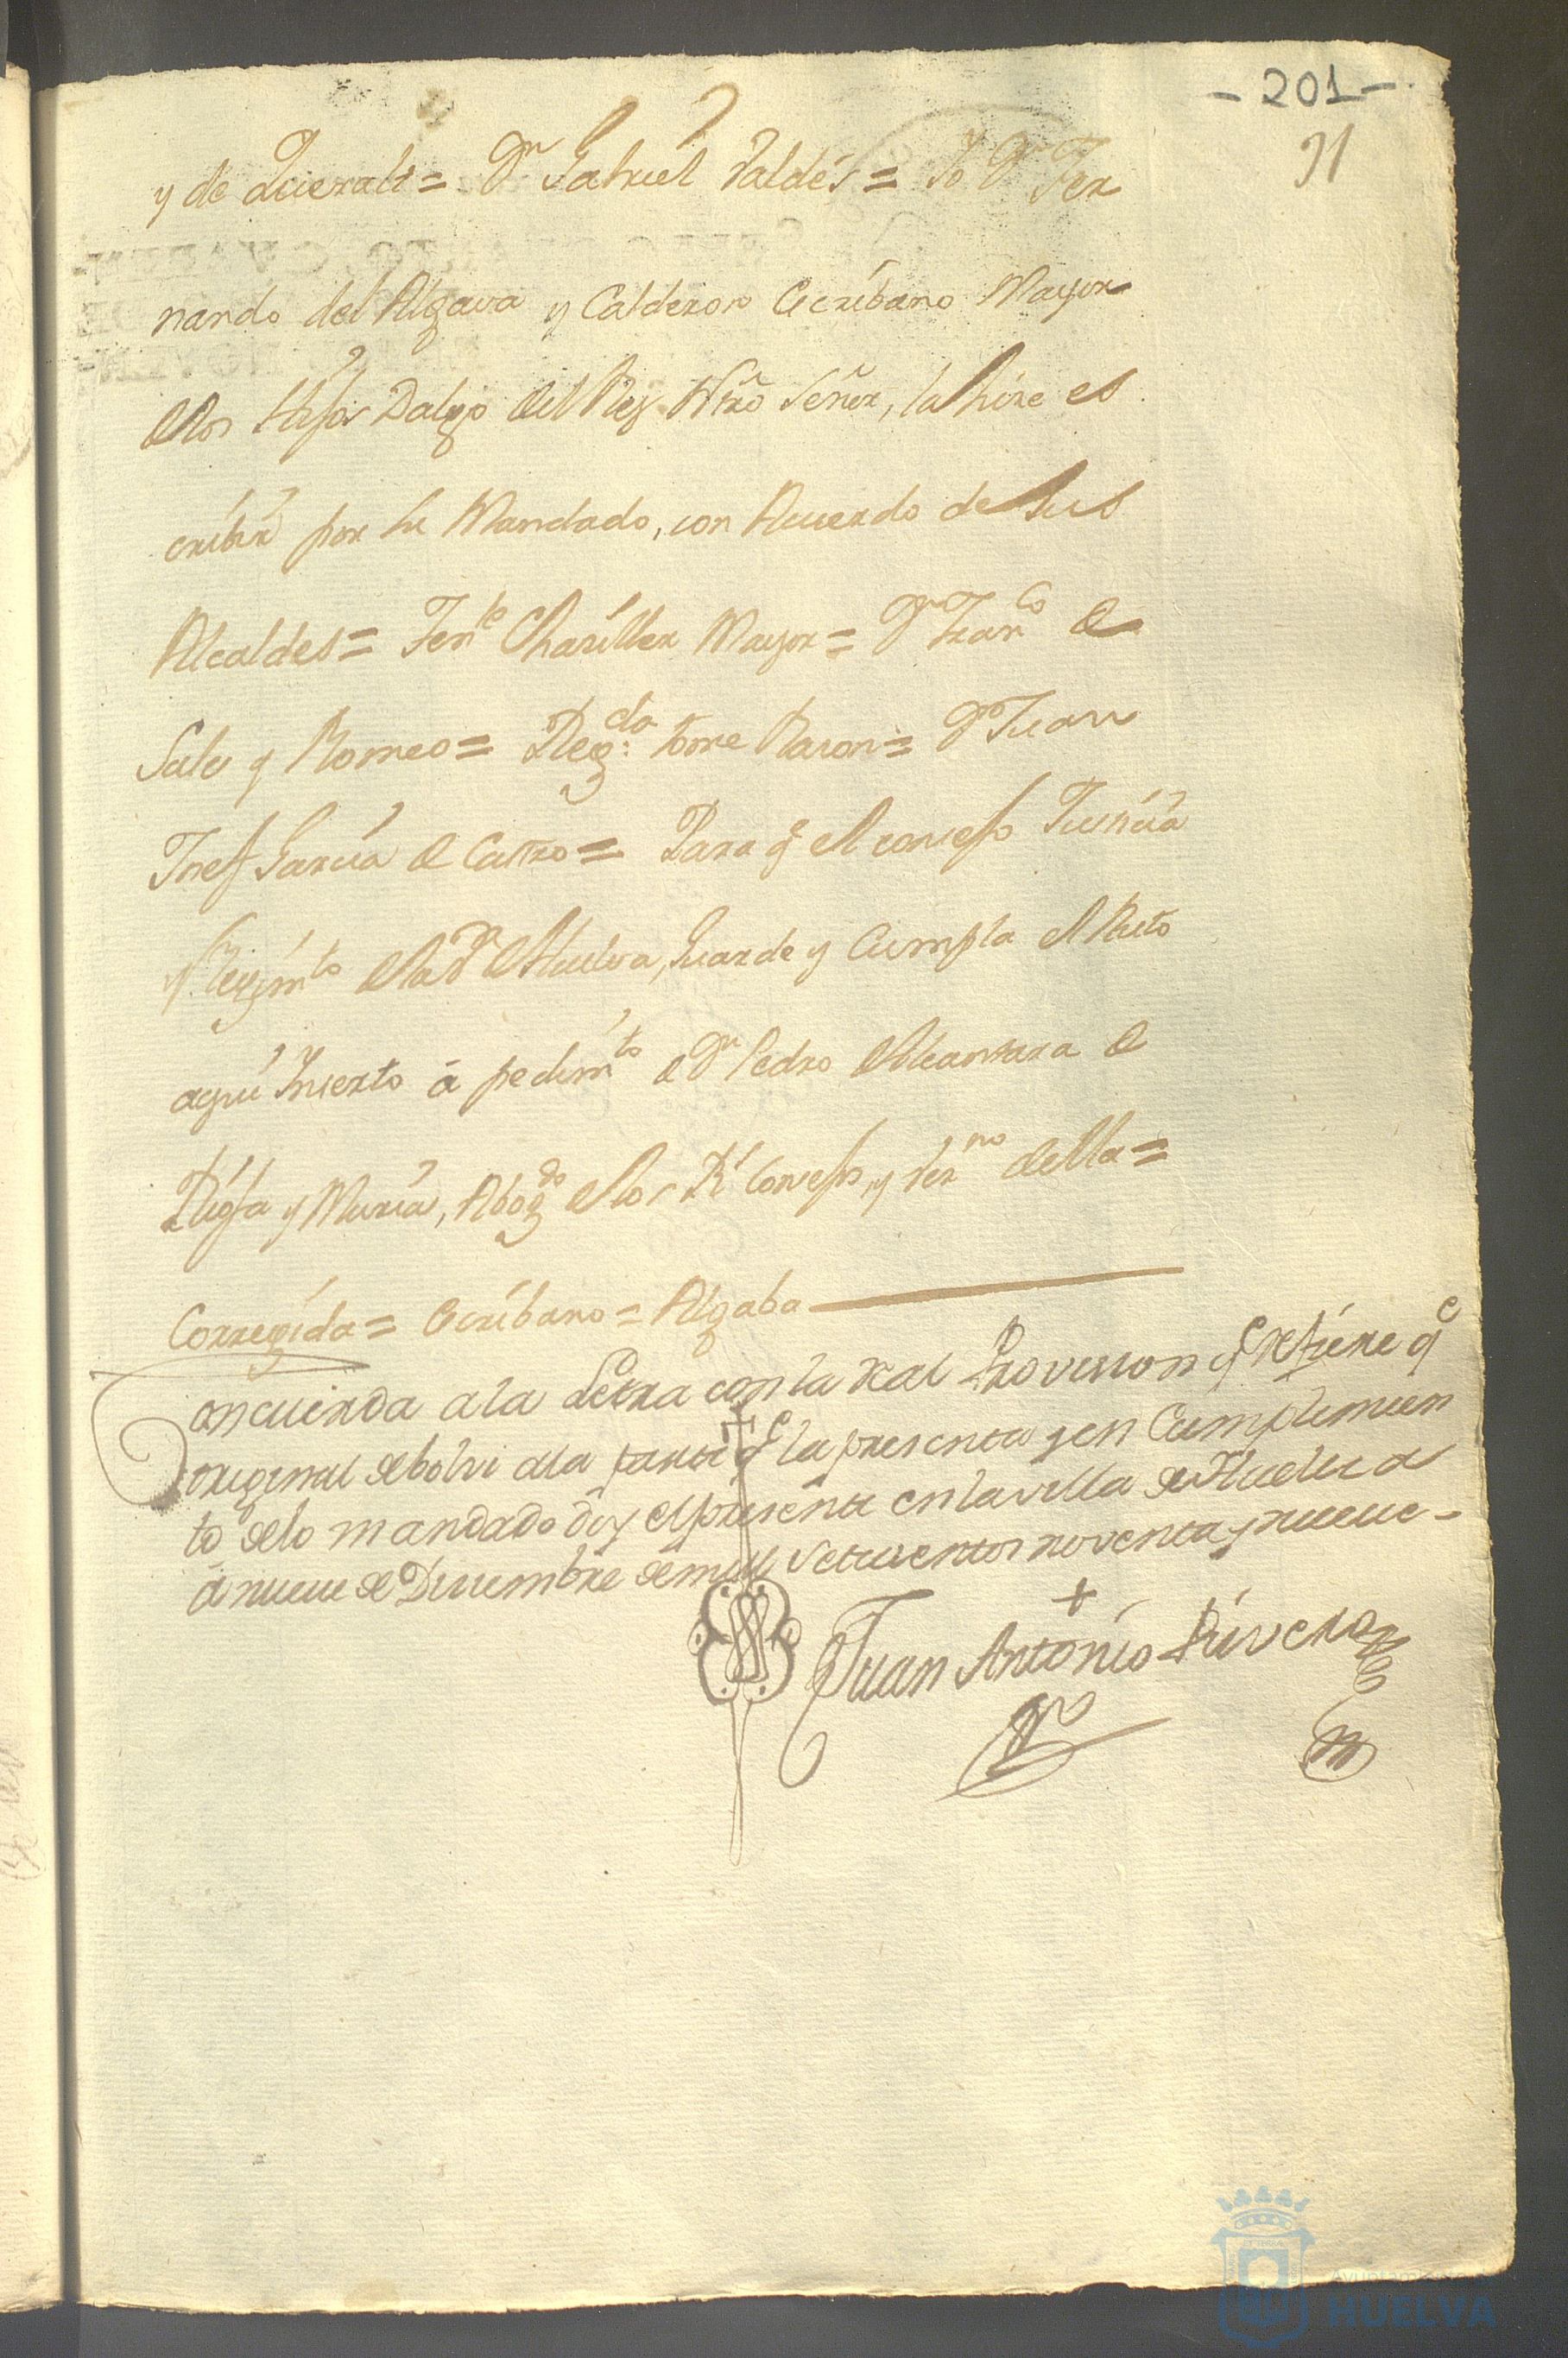 - 201 -
91
y de Queralt = Dn Gabriel Valdés = Yo Dn Fer
nando del Algava y Calderon Escribano Mayor
de los Hijos Dalgo del Rey Ntro Señor, la hize es
cribir por su Mandado, con Acuerdo de sus
Alcaldes = Tente Chanziller Mayor = Dn Franco de
Sales y Romeo = Regda tome Razon = Dn Juan
Josef Garcia de Castro = Para q el consejo Justicia
y Regimto de la Va de Huelva, Guarde y Cumpla el Auto
aqui Inserto á pedimto de Dn Pedro de Alcantara de
Rioja y Muria, Abogdo de los Rs Consejos, y Vezno de ella =
Corregida = Escribano = Algaba
Concuerda a la Letra con la Real Provision qe refiere qe
original debolvi a la parte qe la presenta y en Cumplimien
to de lo mandado doy el presente en la villa de Huelva
á nueve de Diciembre de mill setecientos noventa y nueve -
Juan Antonio Rivera
Ayuntamiento de
HUELVA